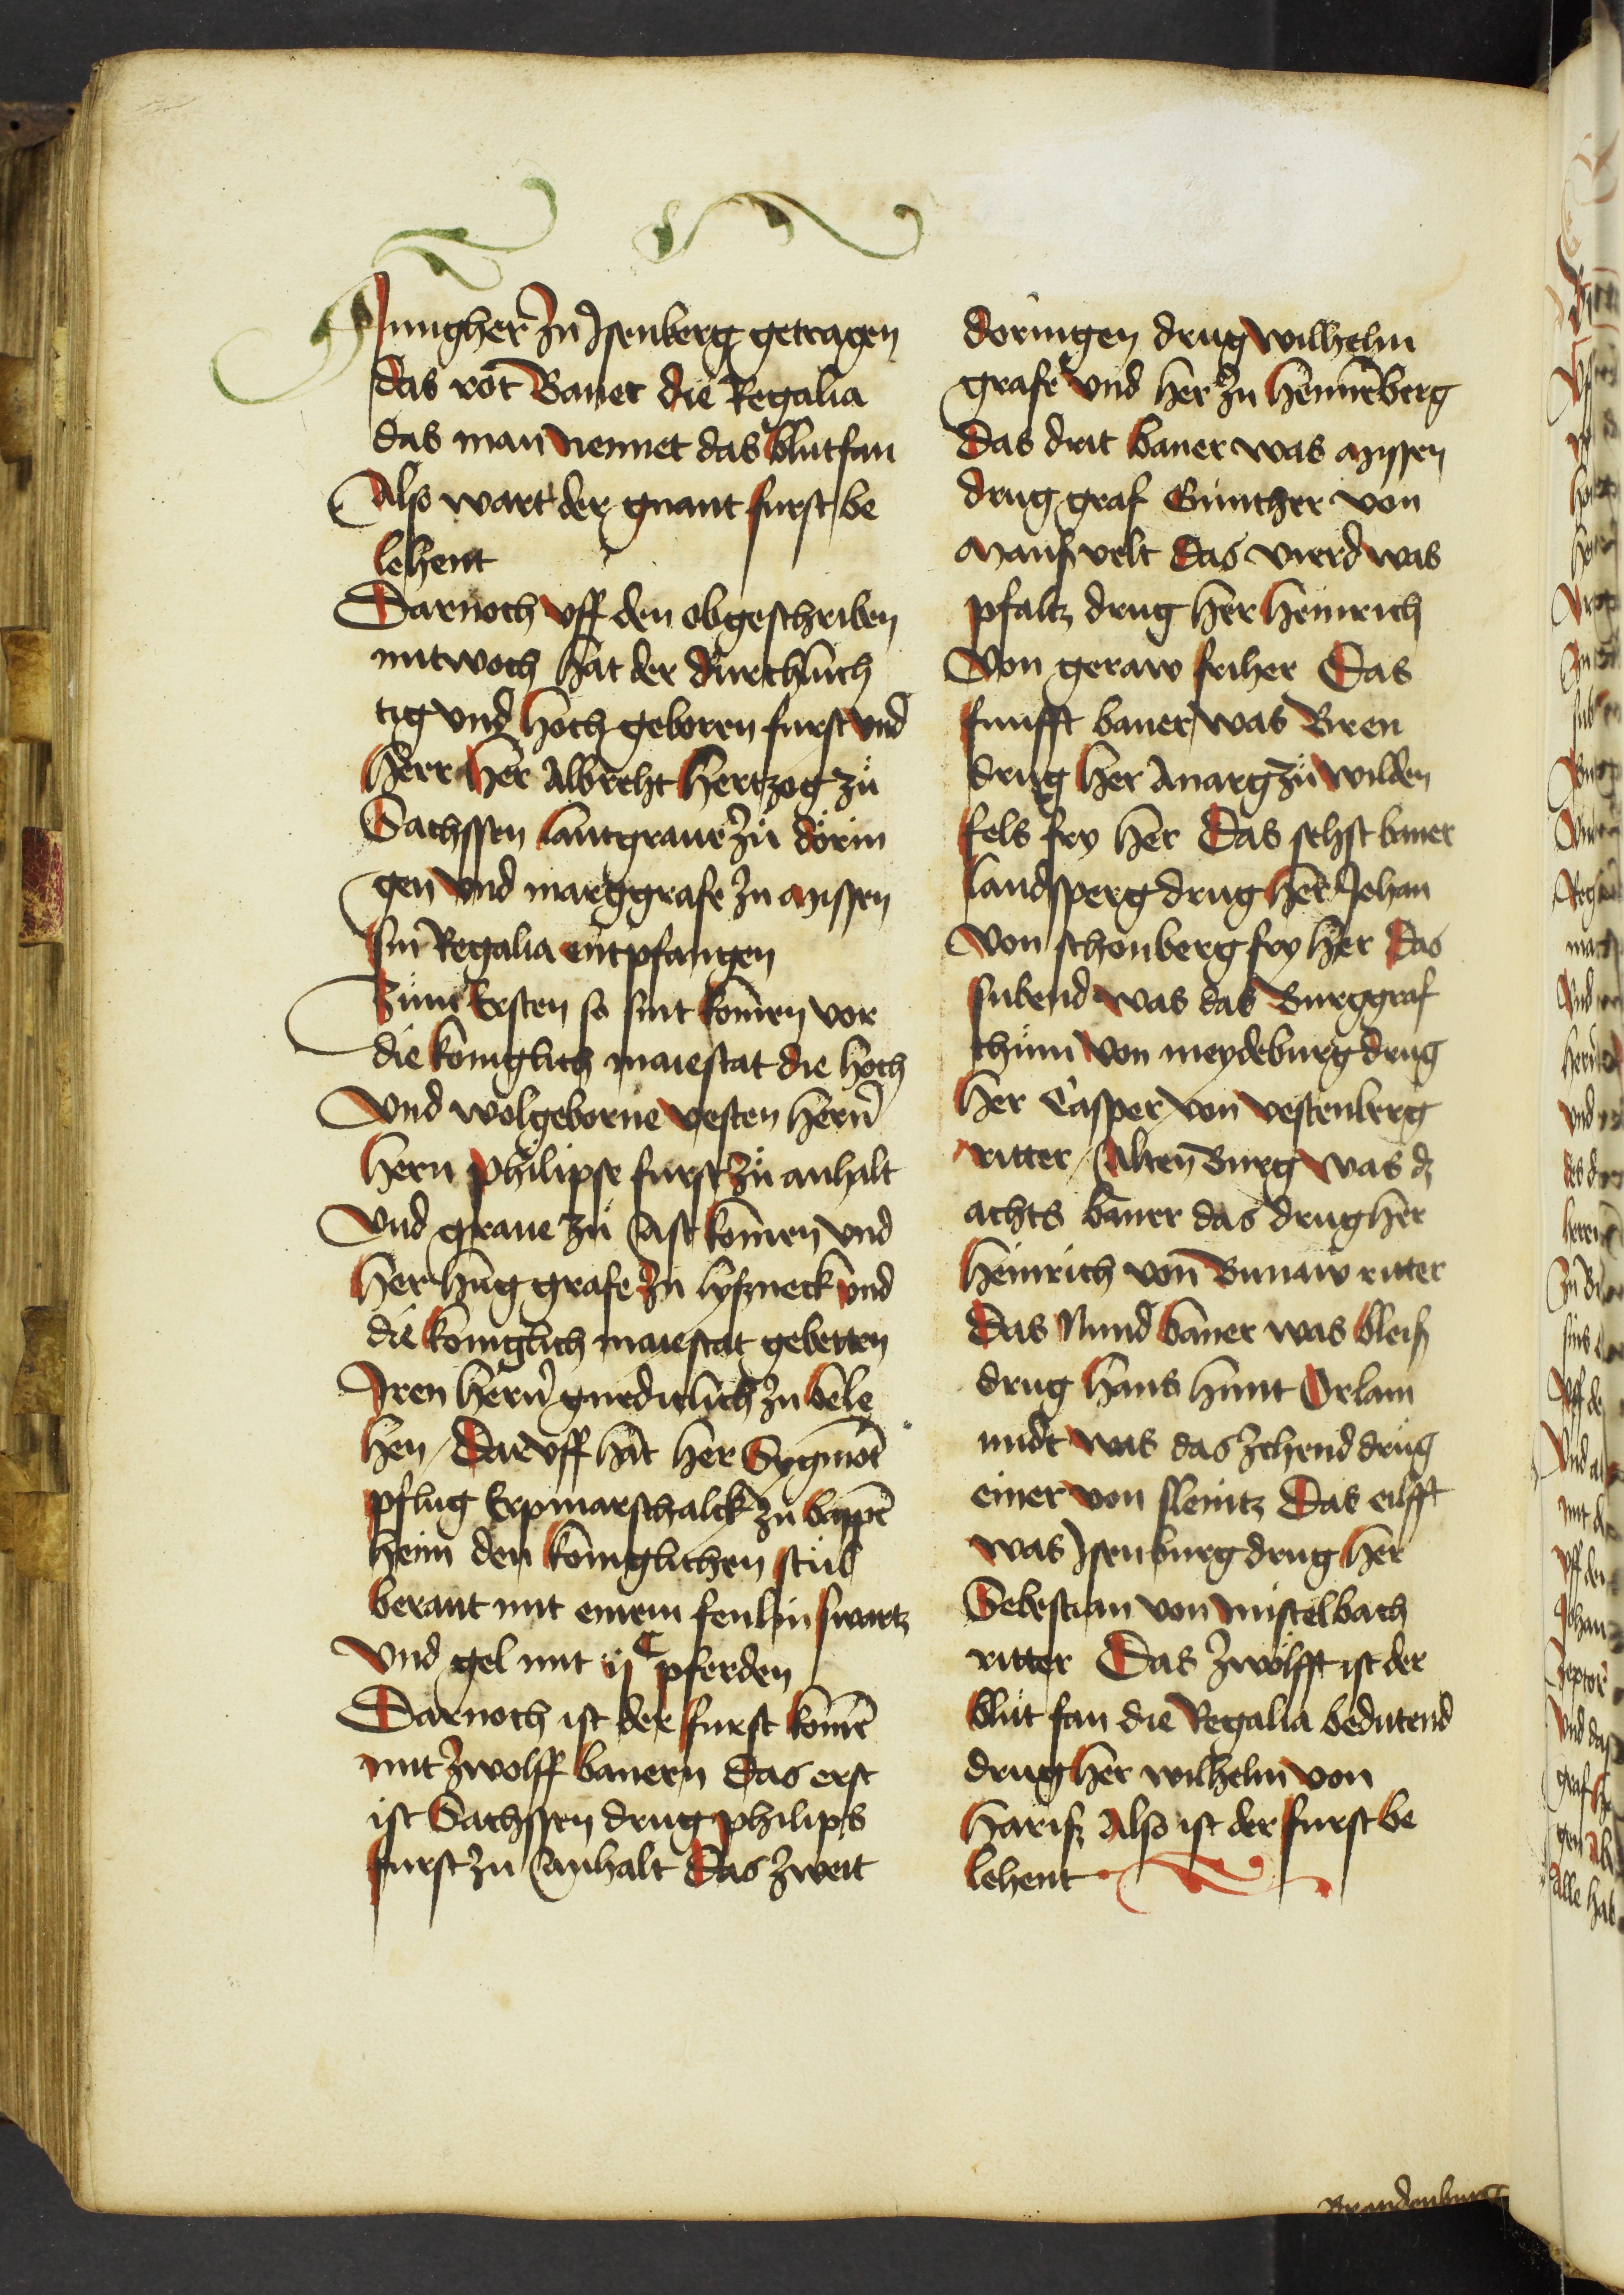 Jungher zu Jsenberg getragen
das rot Baner die Regalia
das man nennet das blutfan
Also wart der gnant furst be
lehent
Darnoch vff den obgeschriben
mitwoch hat der durchluch
tig vnd hoch geborn furst vnd
herr her Albreht hertzog zů
Sachssen lantgraue zů dörin
gen vnd marggrafe zu missen
sin Regalia entpfangen
Zum Ersten so sint komen vor
die koniglich maiestat die hoch
Vnd wolgeborne vesten hern
hern philipse furst zů anhalt
Vnd graue zů Ast komen vnd
her hug grafe zu lyßneck vnd
die koniglich maiestat gebetten
Jren hern gnediclich zu bele
hen / Dar vff hat her Sygmot
pflug Erpmarschalck zu bappē
heim den koniglichen stůl
berant mit einem fenlin swartz
Vnd gel mit ijC pferden
Darnoch ist der furst komē
mit zwolff banern das erst
ist Sachssen drug philips
furst zu Anhalt Das zweit
doringen drug wilhelm
grafe vnd her zu hennēberg
Das drit baner was missen
drug graf Günther von
manßvelt Das vierd was
pfaltz drug her heinrich
Von geraw friher Das
funfft baner was Bren
drug her Anarg zů wilden
fels fry her Das sehst baner
landsperg drug her Johan
von schonberg fry her Das
subend was das Burggraf
thům von meydeburg drug
her Casper von vestenberg
ritter / Alten Burg was dz
achts baner das drug her
heinrich von Bunaw ritter
Das Nund baner was bleiß
drug hans hunt Orlam
nidt was das zehend drug
einer von sleintz Das eilfft
was Jsenburg drug her
Sebestian von mistelbach
ritter Das zwölfft ist der
blůt fan die Regalia bedutend
drug her wilhelm von
hariß Also ist der furst be
lehent
Brandenburg